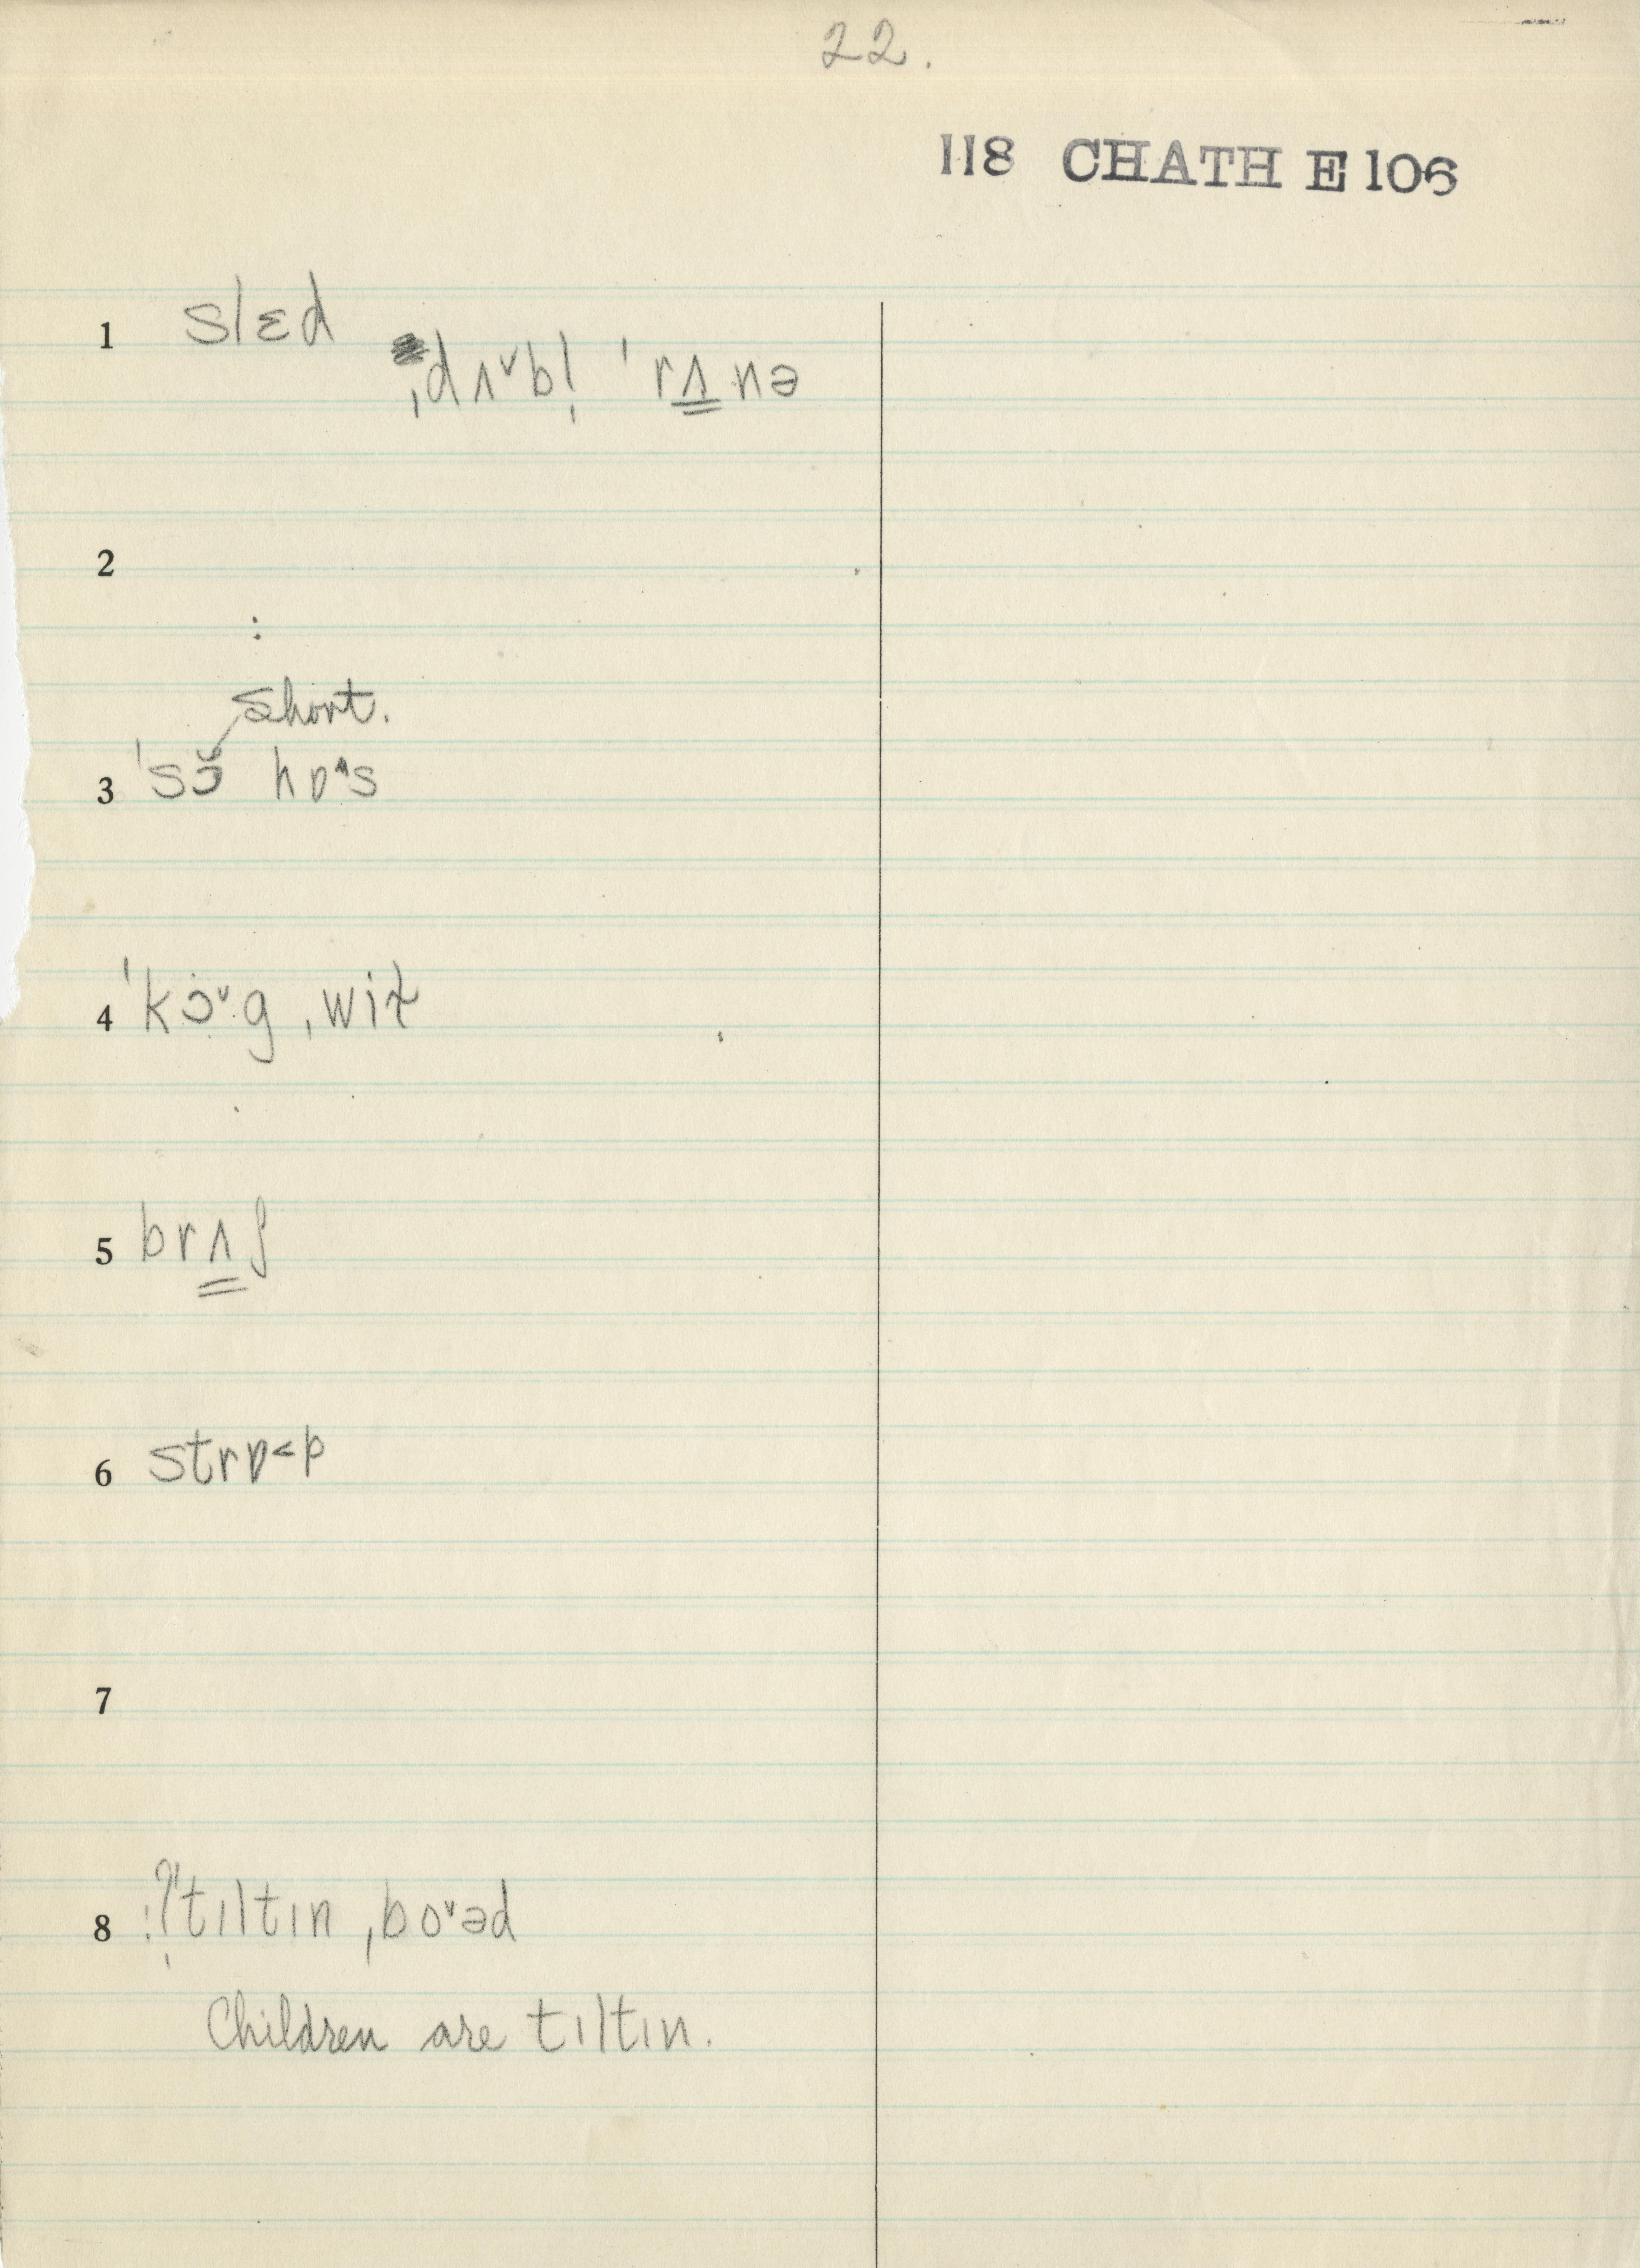 22.
118 CHATH E 106
1 slɛd
ˌdʌ˅bl̩ ˈrʌ̳nə
2
:
short.
3 ˈsɔ̆ hɒ˄s
4 ˈkɔ˅·g ˌwiɫ
5 brʌ̳ʃ
6 strɒ<p
7
8 :ʔ̩ˈtɪltɪn ˌbo˅əd
Children are tɪltɪn.